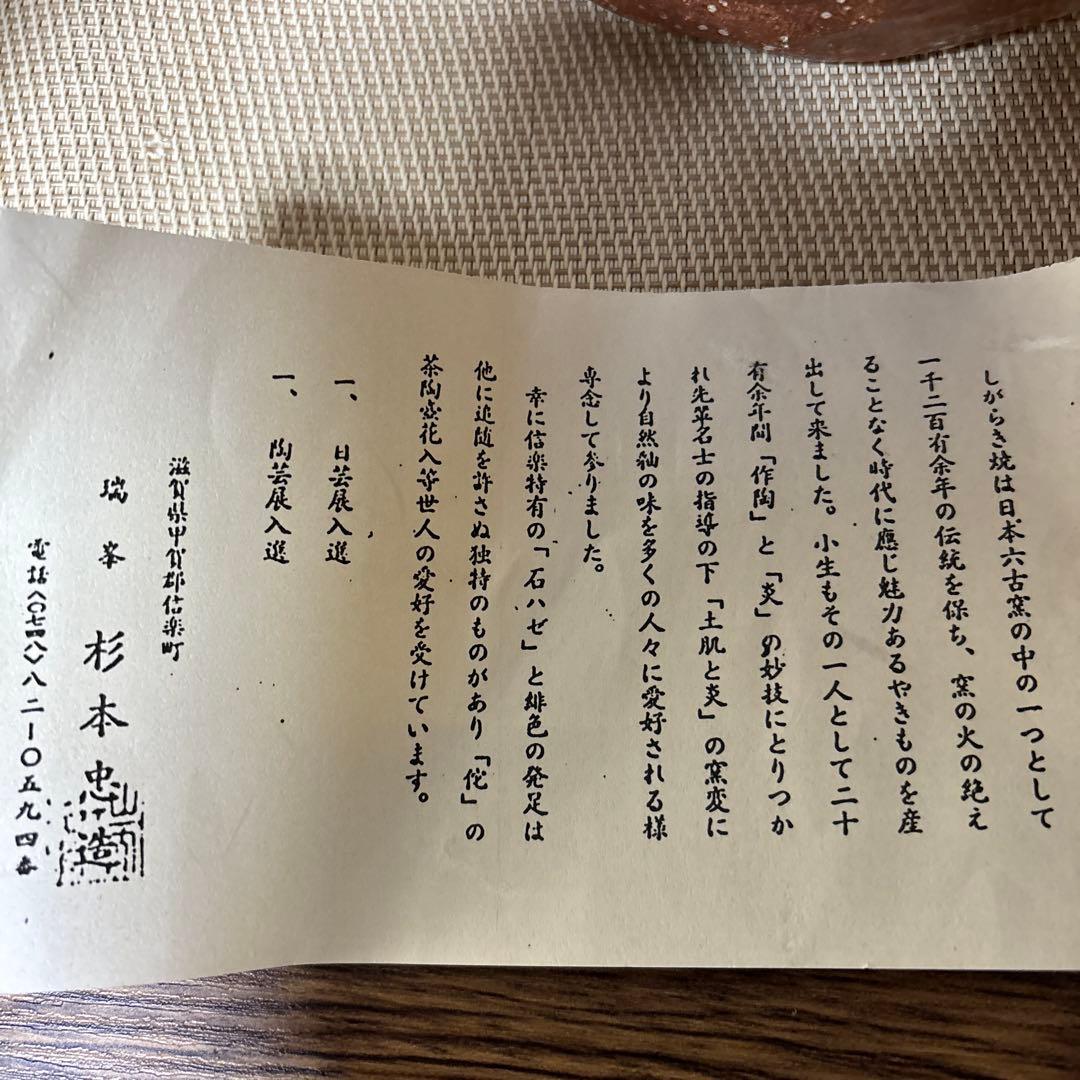 しがらき焼は日本六古窯の中の一つとして
一千二百有余年の伝統を保ち、窯の火の絶え
ることなく時代に應じ魅力あるやきものを産
出して来ました。小生もその一人として二十
有余年間「作陶」と「炎」の妙技にとりつか
れ先輩名士の指導の下「土肌と炎」の窯変に
より自然釉の味を多くの人々に愛好される様
専念して参りました。
幸に信楽特有の「石ハゼ」と緋色の発足は
他に追随を許さぬ独特のものがあり「侘」の
茶陶盛花入等世人の愛好を受けています。
一、日芸展入選
一、陶芸展入選
滋賀県甲賀郡信楽町
瑞峯 杉本忠造
電話〈〇七四八〉八二ー〇五九四番